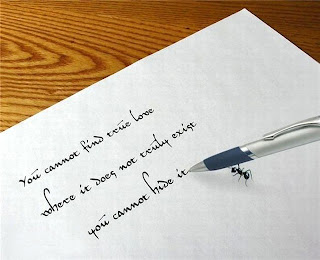 You cannot find true love
where it does not truly exist
you cannot hide it